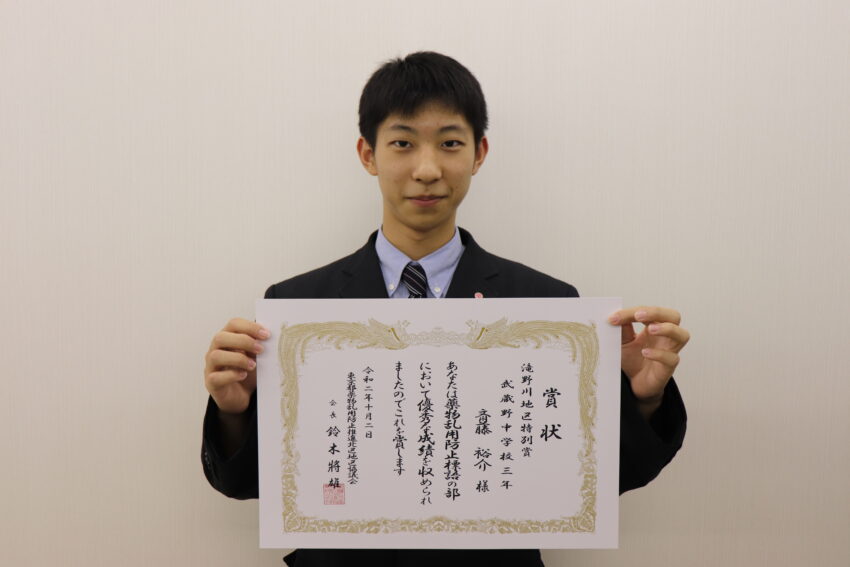 賞状
滝野川地区特別賞
武蔵野中学校三年
斉藤 裕介 様
あなたは薬物乱用防止標語の部
において優秀な成績を収められ
ましたのでこれを賞します
令和二年十月二日
東京都薬物乱用防止推進北区地区協議会
会長 鈴木將雄